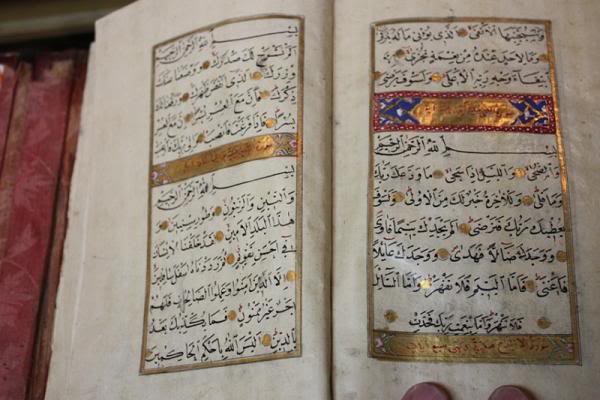 وَسَيُجَنَّبُهَا الْأَتْقَى الَّذِي يُؤْتِي مَالَهُ يَتَزَكَّى
وَمَا لِأَحَدٍ عِنْدَهُ مِنْ نِعْمَةٍ تُجْزَى إِلَّا
ابْتِغَاءَ وَجْهِ رَبِّهِ الْأَعْلَى وَلَسَوْفَ يَرْضَى
بِسْمِ اللهِ الرَّحْمَنِ الرَّحِيمِ
وَالضُّحَى وَاللَّيْلِ إِذَا سَجَى مَا وَدَّعَكَ رَبُّكَ
وَمَا قَلَى وَلَلْآخِرَةُ خَيْرٌ لَكَ مِنَ الْأُولَى وَلَسَوْفَ
يُعْطِيكَ رَبُّكَ فَتَرْضَى أَلَمْ يَجِدْكَ يَتِيمًا فَآوَى
وَوَجَدَكَ ضَالًّا فَهَدَى وَوَجَدَكَ عَائِلًا
فَأَغْنَى فَأَمَّا الْيَتِيمَ فَلَا تَقْهَرْ وَأَمَّا السَّائِلَ
فَلَا تَنْهَرْ وَأَمَّا بِنِعْمَةِ رَبِّكَ فَحَدِّثْ
سورة الانشراح
بِسْمِ اللهِ الرَّحْمَنِ الرَّحِيمِ
أَلَمْ نَشْرَحْ لَكَ صَدْرَكَ وَوَضَعْنَا عَنْكَ
وِزْرَكَ الَّذِي أَنْقَضَ ظَهْرَكَ وَرَفَعْنَا لَكَ
ذِكْرَكَ فَإِنَّ مَعَ الْعُسْرِ يُسْرًا إِنَّ مَعَ الْعُسْرِ
يُسْرًا فَإِذَا فَرَغْتَ فَانْصَبْ وَإِلَى رَبِّكَ فَارْغَبْ
بِسْمِ اللهِ الرَّحْمَنِ الرَّحِيمِ
وَالتِّينِ وَالزَّيْتُونِ وَطُورِ سِينِينَ وَ
هَذَا الْبَلَدِ الْأَمِينِ لَقَدْ خَلَقْنَا الْإِنْسَانَ
فِي أَحْسَنِ تَقْوِيمٍ ثُمَّ رَدَدْنَاهُ أَسْفَلَ سَافِلِينَ
إِلَّا الَّذِينَ آمَنُوا وَعَمِلُوا الصَّالِحَاتِ فَلَهُمْ
أَجْرٌ غَيْرُ مَمْنُونٍ فَمَا يُكَذِّبُكَ بَعْدُ
بِالدِّينِ أَلَيْسَ اللهُ بِأَحْكَمِ الْحَاكِمِينَ